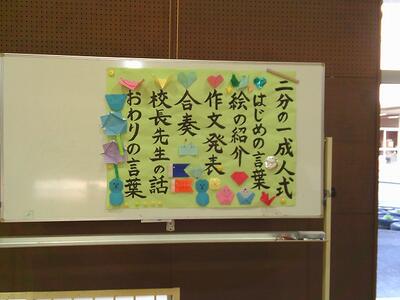 二分の一成人式
はじめの言葉
絵の紹介
作文発表
合奏
校長先生の話
おわりの言葉